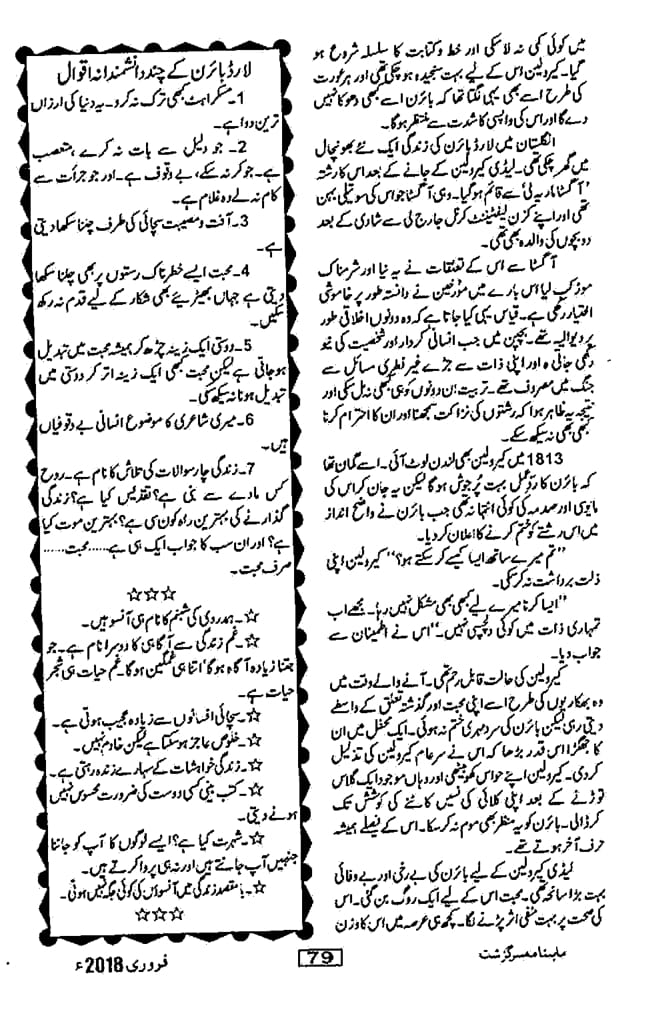 میں کوئی کمی نہ لا سکی اور خط و کتابت کا سلسلہ شروع ہو
گیا۔ کیرولین اس کے لیے بہت سنجیدہ ہو چکی تھی اور ہر عورت
کی طرح اسے بھی یہی لگتا تھا کہ بائرن اسے بھی دھوکا نہیں
دے گا اور اس کی واپسی کا شدت سے منتظر ہو گا۔
انگلستان میں لارڈ بائرن کی زندگی ایک نئے بھونچال
میں گھر چکی تھی۔ لیڈی کیرولین کے جانے کے بعد اس کا رشتہ
’آگسٹا ماریہ لی‘ سے قائم ہو گیا۔ وہی آگسٹا جو اس کی سوتیلی بہن
تھی اور اپنے کزن لیفٹیننٹ کرنل جارج لی سے شادی کے بعد
دو بچوں کی والدہ بھی تھی۔
آگسٹا سے اس کے تعلقات نے یہ نیا اور شرمناک
موڑ کب لیا اس بارے میں مؤرخین نے دانستہ طور پر خاموشی
اختیار رکھی ہے۔ قیاس یہی کیا جاتا ہے کہ وہ دونوں اخلاقی طور
پر دیوالیہ تھے۔ بچپن میں جب انسانی کردار اور شخصیت کی نیو
رکھی جاتی ہ اور اپنی ذات سے جڑے غیر فطری مسائل سے
جنگ میں مصروف تھے۔ تربیت ان دونوں کو ہی بھی نہ مل سکی اور
نتیجہ یہ ظاہر ہوا کہ رشتوں کی نزاکت سمجھنا اور ان کا احترام کرنا
کبھی بھی نہ سیکھ سکے۔
1813 میں کیرولین بھی لندن لوٹ آئی۔ اسے گمان تھا
کہ بائرن کا ردعمل بہت پُرجوش ہو گا لیکن یہ جان کر اس کی
مایوسی اور صدمہ کی کوئی انتہا نہ تھی جب بائرن نے واضح انداز
میں اس رشتے کو ختم کرنے کا اعلان کر دیا۔
’’تم میرے ساتھ ایسا کیسے کر سکتے ہو؟‘‘ کیرولین اپنی
ذلت برداشت نہ کر سکی۔
’’ایسا کرنا میرے لیے کبھی بھی مشکل نہیں رہا۔ مجھے اب
تمہاری ذات میں کوئی دلچسپی نہیں۔‘‘ اس نے اطمینان سے
جواب دیا۔
کیرولین کی حالت قابلِ رحم تھی۔ آنے والے وقت میں
وہ بھکاریوں کی طرح اسے اپنی محبت اور گذشتہ تعلق کے واسطے
دیتی رہی لیکن بائرن کی سرد مہری ختم نہ ہوئی۔ ایک محفل میں ان
کا جھگڑا اس قدر بڑھا کہ اس نے سرعام کیرولین کی تذلیل
کر دی۔ کیرولین اپنے حواس کھو بیٹھی اور وہاں موجود ایک گلاس
توڑنے کے بعد اپنی کلائی کی نسیں کاٹنے کی کوشش تک
کر ڈالی۔ بائرن کو یہ منظر بھی موم نہ کر سکا۔ اس کے فیصلے ہمیشہ
حرف آخر ہوتے تھے۔
لیڈی کیرولین کے لیے بائرن کی بے رخی اور بے وفائی
بہت بڑا سانحہ تھی۔ محبت اس کے لیے ایک روگ بن گئی۔ اس
کی صحت پر بہت منفی اثر پڑنے لگا۔ کچھ ہی عرصہ میں اس کا وزن
لارڈ بائرن کے چند دانشمندانہ اقوال
1۔ مسکراہٹ کبھی ترک نہ کرو۔ یہ دنیا کی ارزاں
ترین دوا ہے۔
2۔ جو دلیل سے بات نہ کرے، متعصب
ہے۔ جو کر نہ سکے، بے وقوف ہے۔ اور جو جرأت سے
کام نہ لے وہ غلام ہے۔
3۔ آفت و مصیبت سچائی کی طرف چلنا سکھا دیتی
ہے۔
4۔ محبت ایسے خطرناک رستوں پر بھی چلنا سکھا
دیتی ہے جہاں بھیڑیے بھی شکار کے لیے قدم نہ رکھ
سکیں۔
5۔ دوستی ایک زینہ چڑھ کر ہمیشہ محبت میں تبدیل
ہو جاتی ہے لیکن محبت بھی ایک زینہ اتر کر دوستی میں
تبدیل ہونا نہ سیکھ سکی۔
6۔ میری شاعری کا موضوع انسانی بے وقوفیاں
ہیں۔
7۔ زندگی چار سوالات کی تلاش کا نام ہے۔ روح
کس مادے سے بنی ہے؟ تقدیس کیا ہے؟ زندگی
گذارنے کی بہترین راہ کون سی ہے؟ بہترین موت کیا
ہے؟ اور ان سب کا جواب ایک ہی ہے......محبت......
صرف محبت۔
☆☆☆
☆۔ ہمدردی کی شبنم کا نام ہی آنسو ہیں۔
☆۔ غم زندگی سے آگاہی کا دوسرا نام ہے۔ جو
جتنا زیادہ آگاہ ہو گا، اتنا ہی غمگین ہو گا۔ غم حیات ہی شجر
حیات ہے۔
☆۔ سچائی افسانوں سے زیادہ عجیب ہوتی ہے۔
☆۔ خلوص عاجز ہو سکتا ہے لیکن خادم نہیں۔
☆۔ زندگی خواہشات کے سہارے زندہ رہتی ہے۔
☆۔ کتب بینی کسی دوست کی ضرورت محسوس نہیں
ہونے دیتی۔
☆۔ شہرت کیا ہے؟ ایسے لوگوں کا آپ کو جاننا
جنہیں آپ جانتے ہیں اور نہ ہی پروا کرتے ہیں۔
☆۔ بامقصد زندگی میں آنسوؤں کی کوئی جگہ نہیں ہوتی۔
☆☆☆
ماہنامہ سرگزشت
79
فروری 2018ء